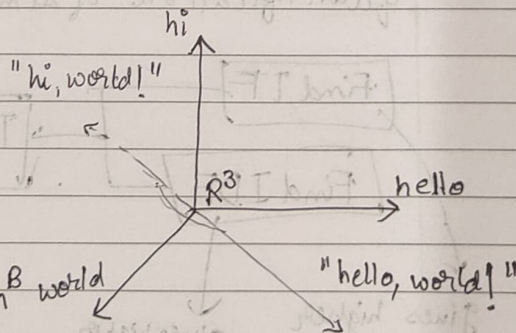 hi
"hi, world!"
R³
hello
B world
"hello, world!"